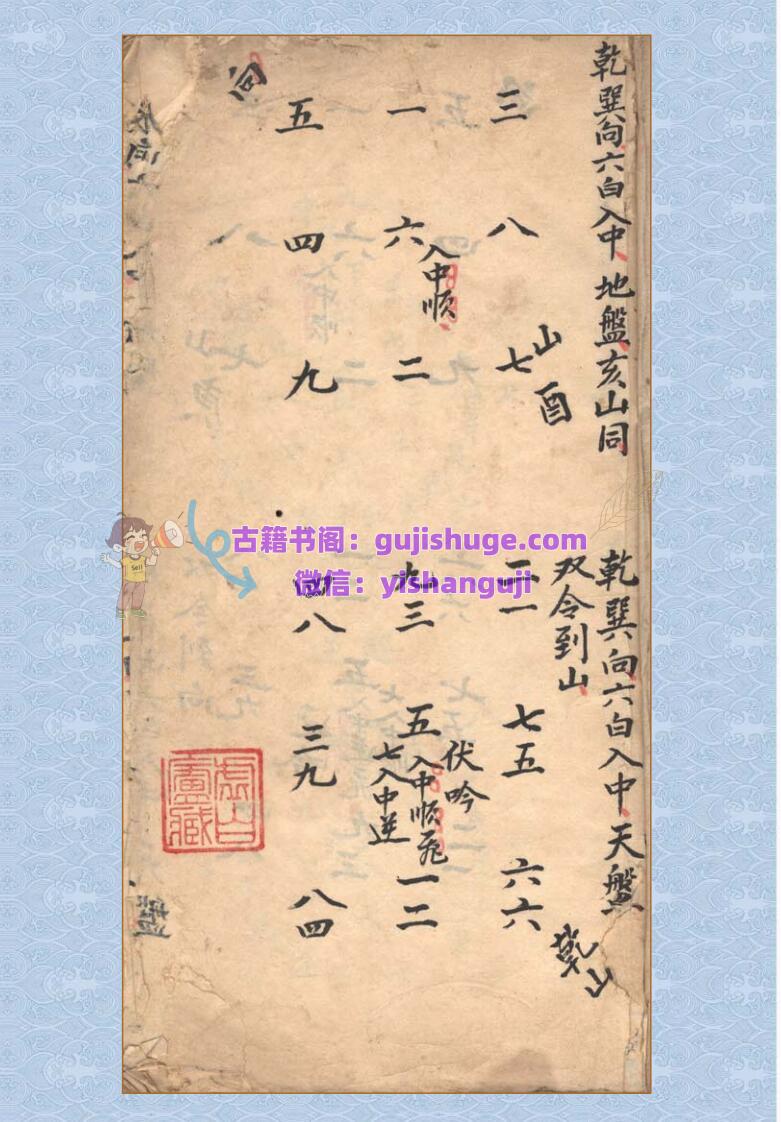 乾巽向六白入中 地盤亥山同
三 八 七
山
酉
一 六 二
入中順
五 四 九
向
乾巽向六白入中 天盤
双令到山
二一 七五 六六
乾山
伏吟
九三 五 一二
入中順飛
七入中逆
四八 三九 八四
盤
古籍书阁：gujishuge.com
微信：yishanguji
Sell